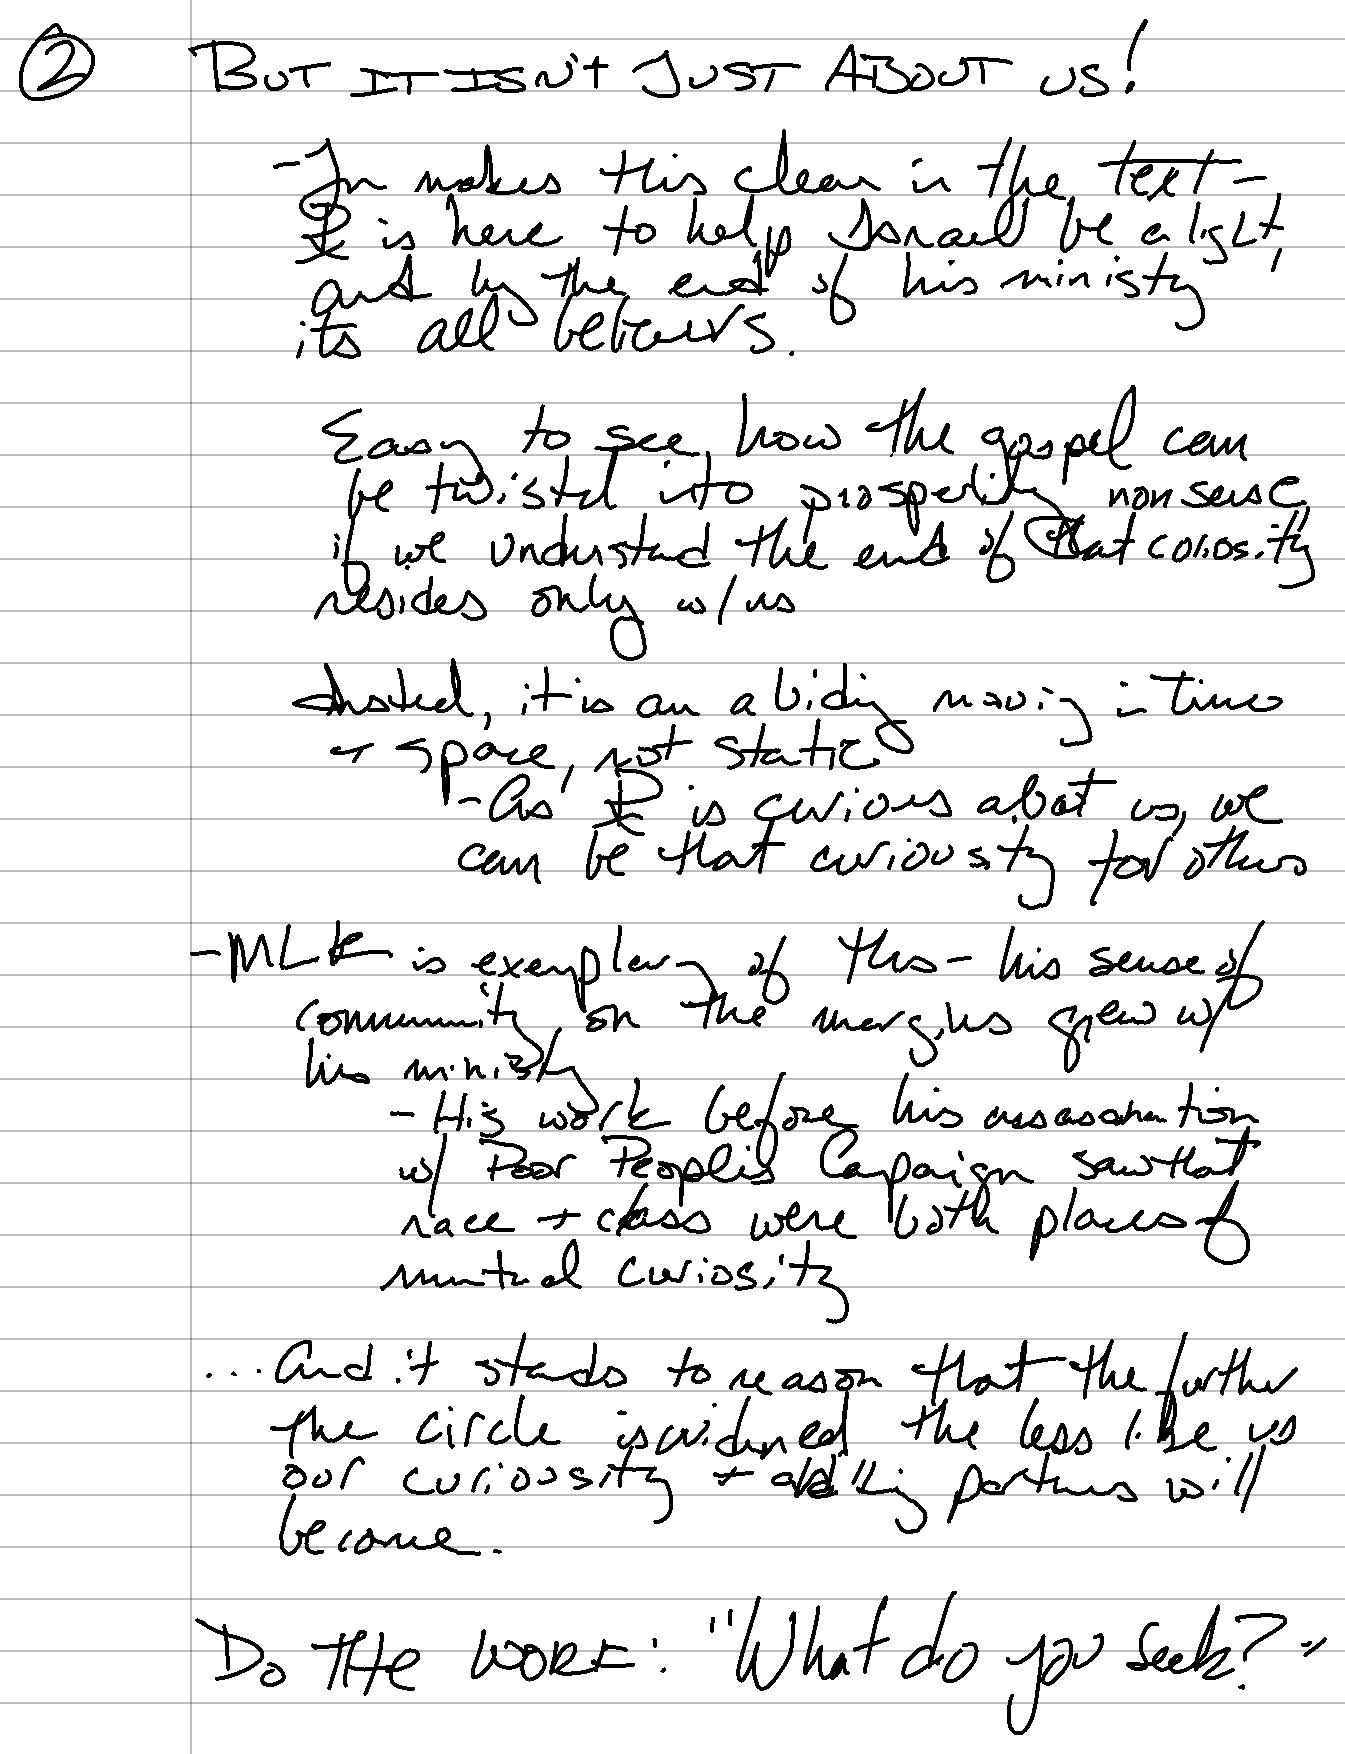 ② BUT IT ISN'T JUST ABOUT US!
- Jn makes this clear in the text -
is here to help Israel be a light,
and by the end of his ministry
its all believers.
Easy to see how the gospel can
be twisted into prosperity nonsense,
if we understand the end of that coriosity
resides only w/ us
Insted, it is an abiding moving in time
+ space, not static
- As is curious about us, we
can be that curiousity for others
- MLK is exemplary of this - his sense of
community on the margins grew w/
his ministry
- His work before his assassination
w/ Poor People's Campaign saw that
race + class were both places of
mutual curiosity
... And it stands to reason that the further
the circle is widened the less like us
our curiousity + abiding partners will
become.
DO THE WORK: "What do you seek?"